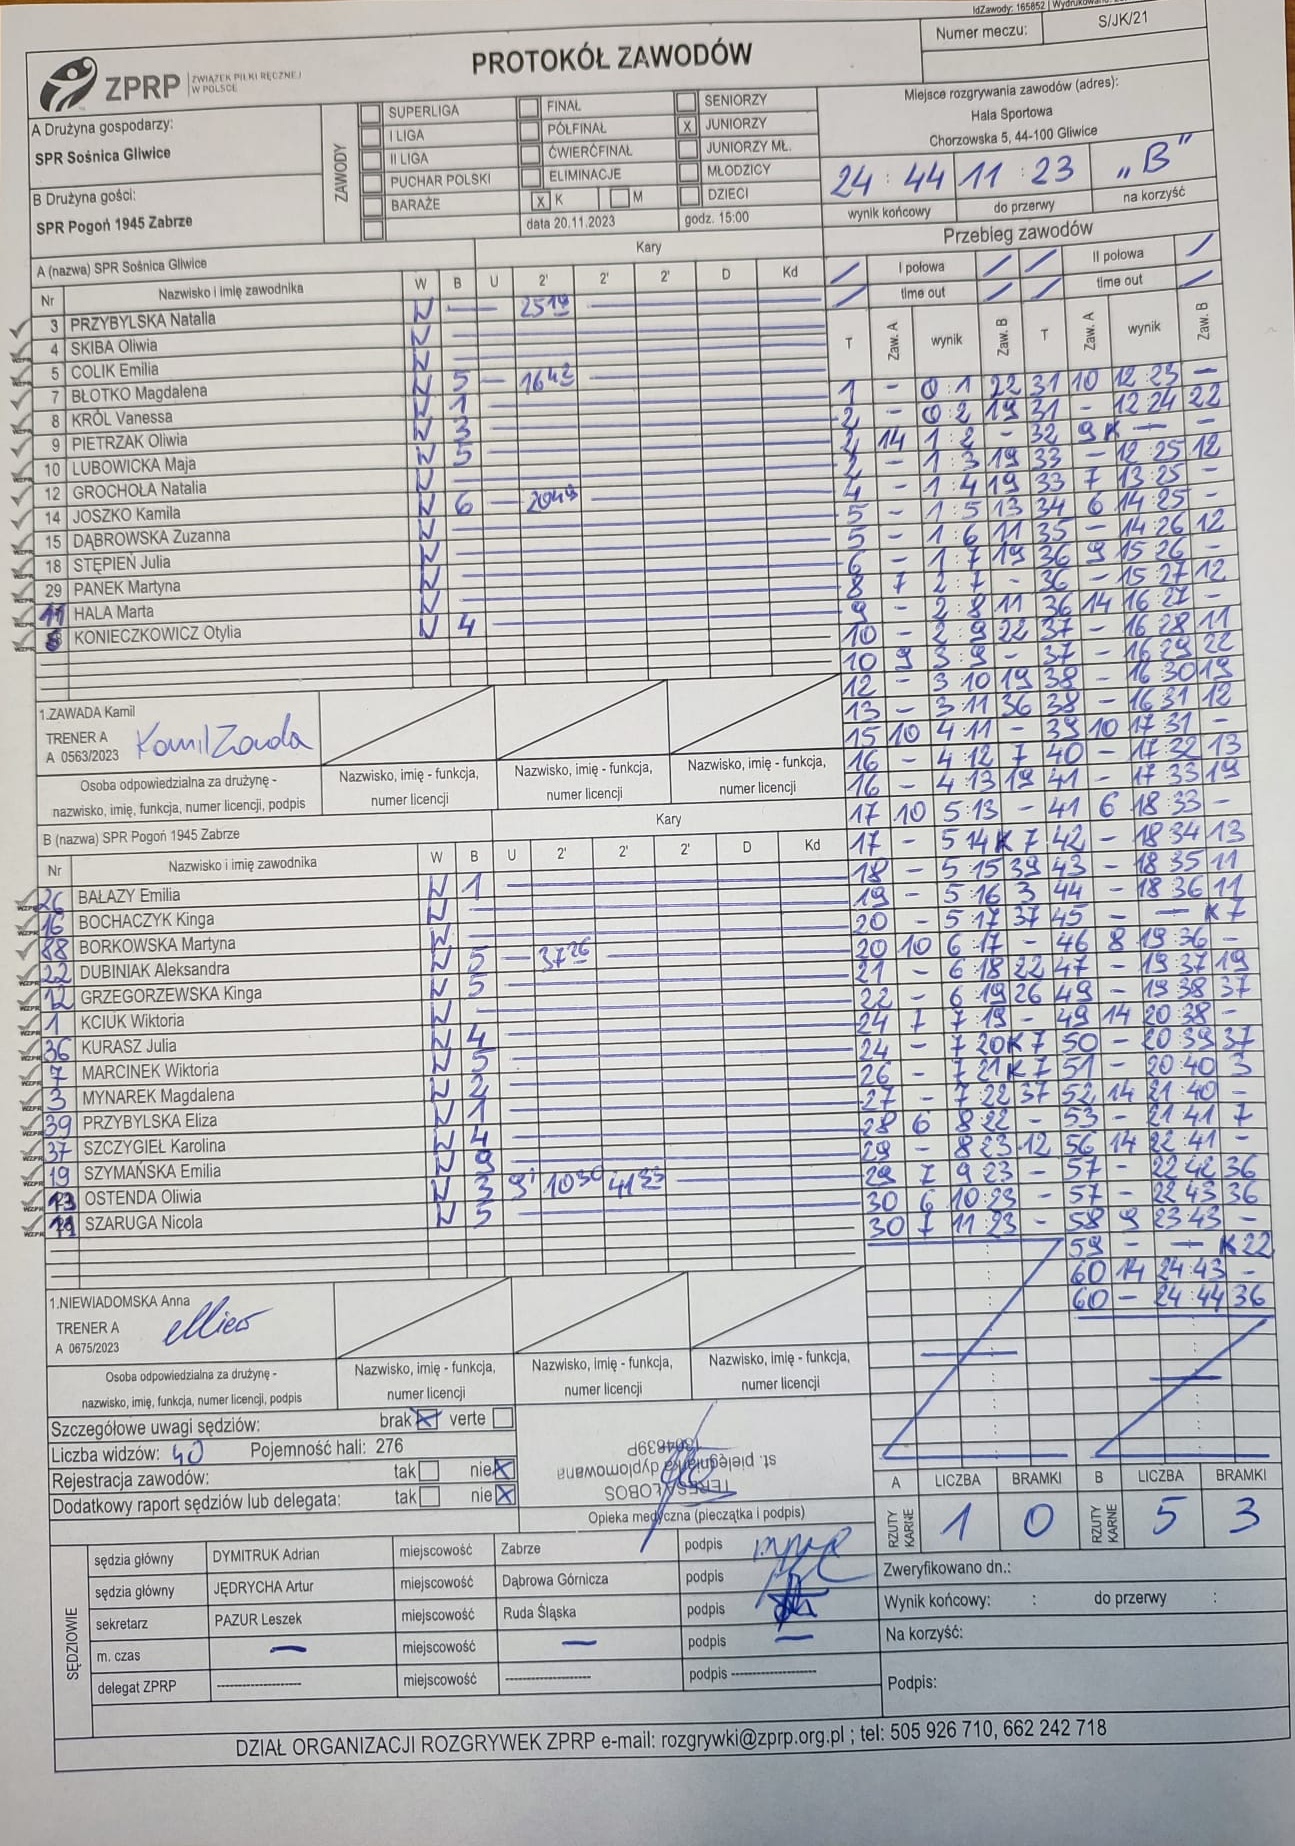 IdZawody: 165852 | Wydrukowano:
Numer meczu: S/JK/21
PROTOKÓŁ ZAWODÓW
ZPRP ZWIĄZEK PIŁKI RĘCZNEJ
W POLSCE
A Drużyna gospodarzy:
SPR Sośnica Gliwice
B Drużyna gości:
SPR Pogoń 1945 Zabrze
ZAWODY
SUPERLIGA FINAŁ SENIORZY
I LIGA PÓŁFINAŁ X JUNIORZY
II LIGA ĆWIERĆFINAŁ JUNIORZY MŁ.
PUCHAR POLSKI ELIMINACJE MŁODZICY
BARAŻE X K M DZIECI
data 20.11.2023 godz. 15:00
Miejsce rozgrywania zawodów (adres):
Hala Sportowa
Chorzowska 5, 44-100 Gliwice
24 : 44 11 : 23 „B”
wynik końcowy do przerwy na korzyść
A (nazwa) SPR Sośnica Gliwice Kary
Nr Nazwisko i imię zawodnika W B U 2' 2' 2' D Kd
3 PRZYBYLSKA Natalia W — 25 19
4 SKIBA Oliwia W
5 COLIK Emilia W
7 BŁOTKO Magdalena W 5 — 16 42
8 KRÓL Vanessa W 1
9 PIETRZAK Oliwia W 3
10 LUBOWICKA Maja W 5
12 GROCHOŁA Natalia W
14 JOSZKO Kamila W 6 — 20 49
15 DĄBROWSKA Zuzanna W
18 STĘPIEŃ Julia W
29 PANEK Martyna W
11 HALA Marta W
6 KONIECZKOWICZ Otylia W 4
1.ZAWADA Kamil
TRENER A
A 0563/2023
Kamil Zawada
Osoba odpowiedzialna za drużynę -
nazwisko, imię, funkcja, numer licencji, podpis
Nazwisko, imię - funkcja,
numer licencji
Nazwisko, imię - funkcja,
numer licencji
Nazwisko, imię - funkcja,
numer licencji
B (nazwa) SPR Pogoń 1945 Zabrze Kary
Nr Nazwisko i imię zawodnika W B U 2' 2' 2' D Kd
26 BAŁAZY Emilia W 1
16 BOCHACZYK Kinga W
88 BORKOWSKA Martyna W
22 DUBINIAK Aleksandra W 5 — 37 26
12 GRZEGORZEWSKA Kinga W 5
1 KCIUK Wiktoria W
36 KURASZ Julia W 4
7 MARCINEK Wiktoria W 5
3 MYNAREK Magdalena W 2
39 PRZYBYLSKA Eliza W 1
37 SZCZYGIEŁ Karolina W 4
19 SZYMAŃSKA Emilia W 9
13 OSTENDA Oliwia W 3 9' 10 30 41 33
11 SZARUGA Nicola W 5
1.NIEWIADOMSKA Anna
TRENER A
A 0675/2023
Osoba odpowiedzialna za drużynę -
nazwisko, imię, funkcja, numer licencji, podpis
Nazwisko, imię - funkcja,
numer licencji
Nazwisko, imię - funkcja,
numer licencji
Nazwisko, imię - funkcja,
numer licencji
Przebieg zawodów
I połowa II połowa
time out time out
T Zaw. A wynik Zaw. B T Zaw. A wynik Zaw. B
1 – 0:1 22 31 10 12:23 –
2 – 0:2 19 31 – 12:24 22
2 14 1:2 – 32 9K — –
2 – 1:3 19 33 – 12:25 12
4 – 1:4 19 33 7 13:25 –
5 – 1:5 13 34 6 14:25 –
5 – 1:6 11 35 – 14:26 12
6 – 1:7 19 36 9 15:26 –
8 7 2:7 – 36 – 15:27 12
9 – 2:8 11 36 14 16:27 –
10 – 2:9 22 37 – 16:28 11
10 9 3:9 – 37 – 16:29 22
12 – 3:10 19 38 – 16:30 19
13 – 3:11 36 38 – 16:31 12
15 10 4:11 – 39 10 17:31 –
16 – 4:12 7 40 – 17:32 13
16 – 4:13 19 41 – 17:33 19
17 10 5:13 – 41 6 18:33 –
17 – 5:14 K7 42 – 18:34 13
18 – 5:15 39 43 – 18:35 11
19 – 5:16 3 44 – 18:36 11
20 – 5:17 37 45 – — K7
20 10 6:17 – 46 8 19:36 –
21 – 6:18 22 47 – 19:37 19
22 – 6:19 26 49 – 19:38 37
24 7 7:19 – 49 14 20:38 –
24 – 7:20 K7 50 – 20:39 37
26 – 7:21 K7 51 – 20:40 3
27 – 7:22 37 52 14 21:40 –
28 6 8:22 – 53 – 21:41 7
29 – 8:23 12 56 14 22:41 –
29 7 9:23 – 57 – 22:42 36
30 6 10:23 – 57 – 22:43 36
30 7 11:23 – 58 9 23:43 –
59 – — K22
60 14 24:43 –
60 – 24:44 36
A LICZBA BRAMKI B LICZBA BRAMKI
RZUTY KARNE 1 0 RZUTY KARNE 5 3
Szczegółowe uwagi sędziów: brak X verte
Liczba widzów: 40 Pojemność hali: 276
Rejestracja zawodów: tak nie X
Dodatkowy raport sędziów lub delegata: tak nie X
TERESA ŁOBOS
st. pielęgniarka dyplomowana
Opieka medyczna (pieczątka i podpis)
SĘDZIOWIE
sędzia główny DYMITRUK Adrian miejscowość Zabrze podpis
sędzia główny JĘDRYCHA Artur miejscowość Dąbrowa Górnicza podpis
sekretarz PAZUR Leszek miejscowość Ruda Śląska podpis
m. czas — miejscowość — podpis —
delegat ZPRP -------------------- miejscowość -------------------- podpis --------------------
Zweryfikowano dn.:
Wynik końcowy: : do przerwy :
Na korzyść:
Podpis:
DZIAŁ ORGANIZACJI ROZGRYWEK ZPRP e-mail: rozgrywki@zprp.org.pl ; tel: 505 926 710, 662 242 718